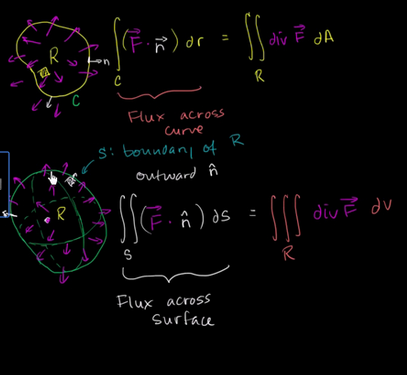 R
n
C
∫_C (F⃗ · n⃗) dr = ∬_R div F⃗ dA
Flux across
curve
S: boundary of R
outward n̂
R
∬_S (F⃗ · n̂) dS = ∭_R div F⃗ dV
Flux across
surface